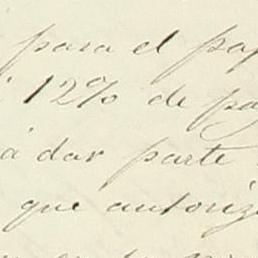 para el pap
12% de pa
á dar parte
que autoriz